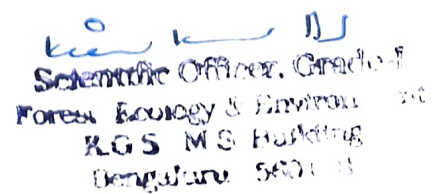 Scientific Officer, Grade-I
Forest Ecology & Environ
K.G.S M S Building
Bengaluru 560